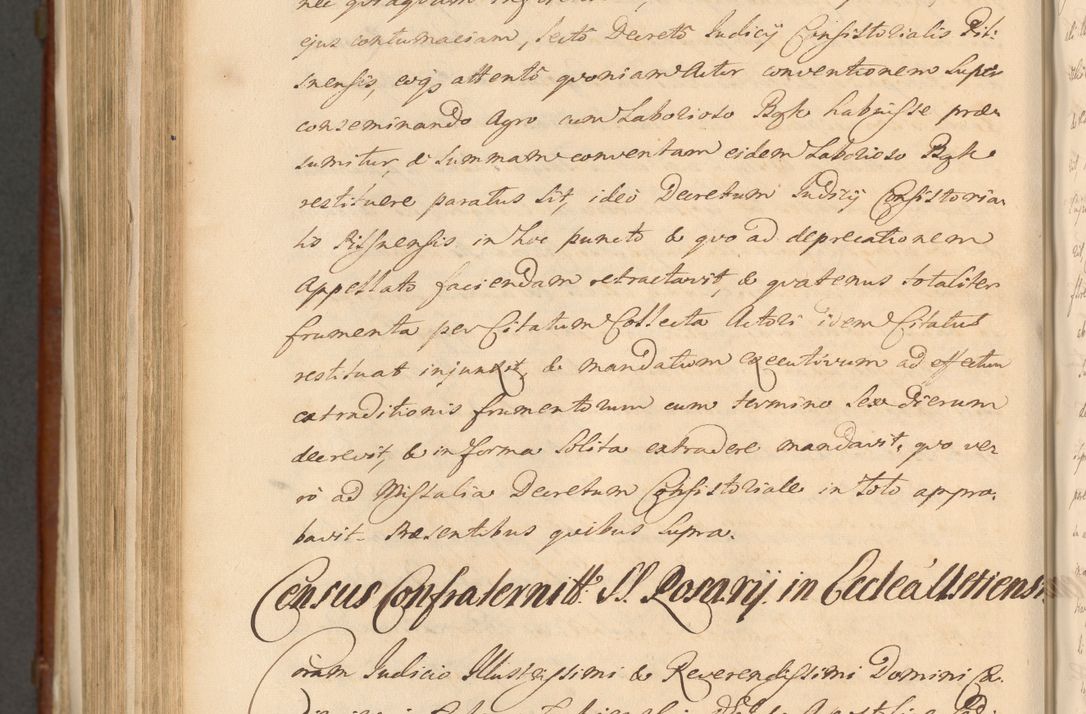 ejus contumaciam, lecto Decreto Judicij Consistorialis Pil:
snensis, eoq; attento quoniam Actor conventionem super
conseminando Agro cum Laborioso Bąk habuisse præ-
sumitur, & summam conventam eidem Laborioso Bąk
restituere paratus sit, ideo Decretum Judicij Consistoria-
lis Pilsnensis in hoc puncto & quo ad deprecationem
Appellato faciendam retractavit, & quatenus totaliter
frumenta per Citatum Collecta Actori idem Citatus
restituat injunxit, & mandatum executivum ad effectum
extraditionis frumentorum cum termino sex Dierum
decrevit, & in forma solita extradere mandavit, quo ve-
rò ad Missalia Decretum Consistoriale in toto appro-
bavit. Præsentibus quibus supra.
Census Confraternitt: SS. Rosarij in Ecclea Ustiensi
Coram Judicio Illustrissimi & Reverendissimi Domini